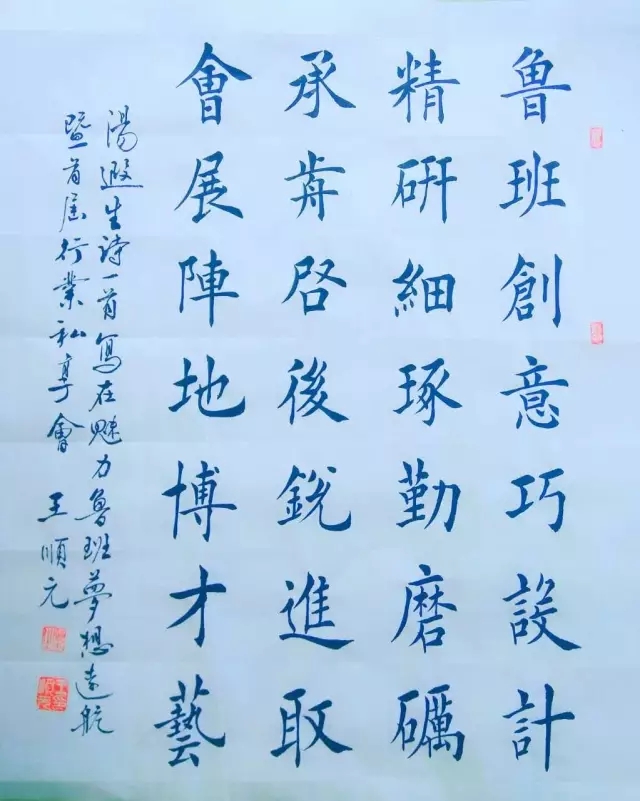 魯班創意巧設計
精研細琢勤磨礪
承前啓後銳進取
會展陣地博才藝
湯遐生诗一首寫在魅力魯班夢想遠航
暨首届行業私享會 王順元